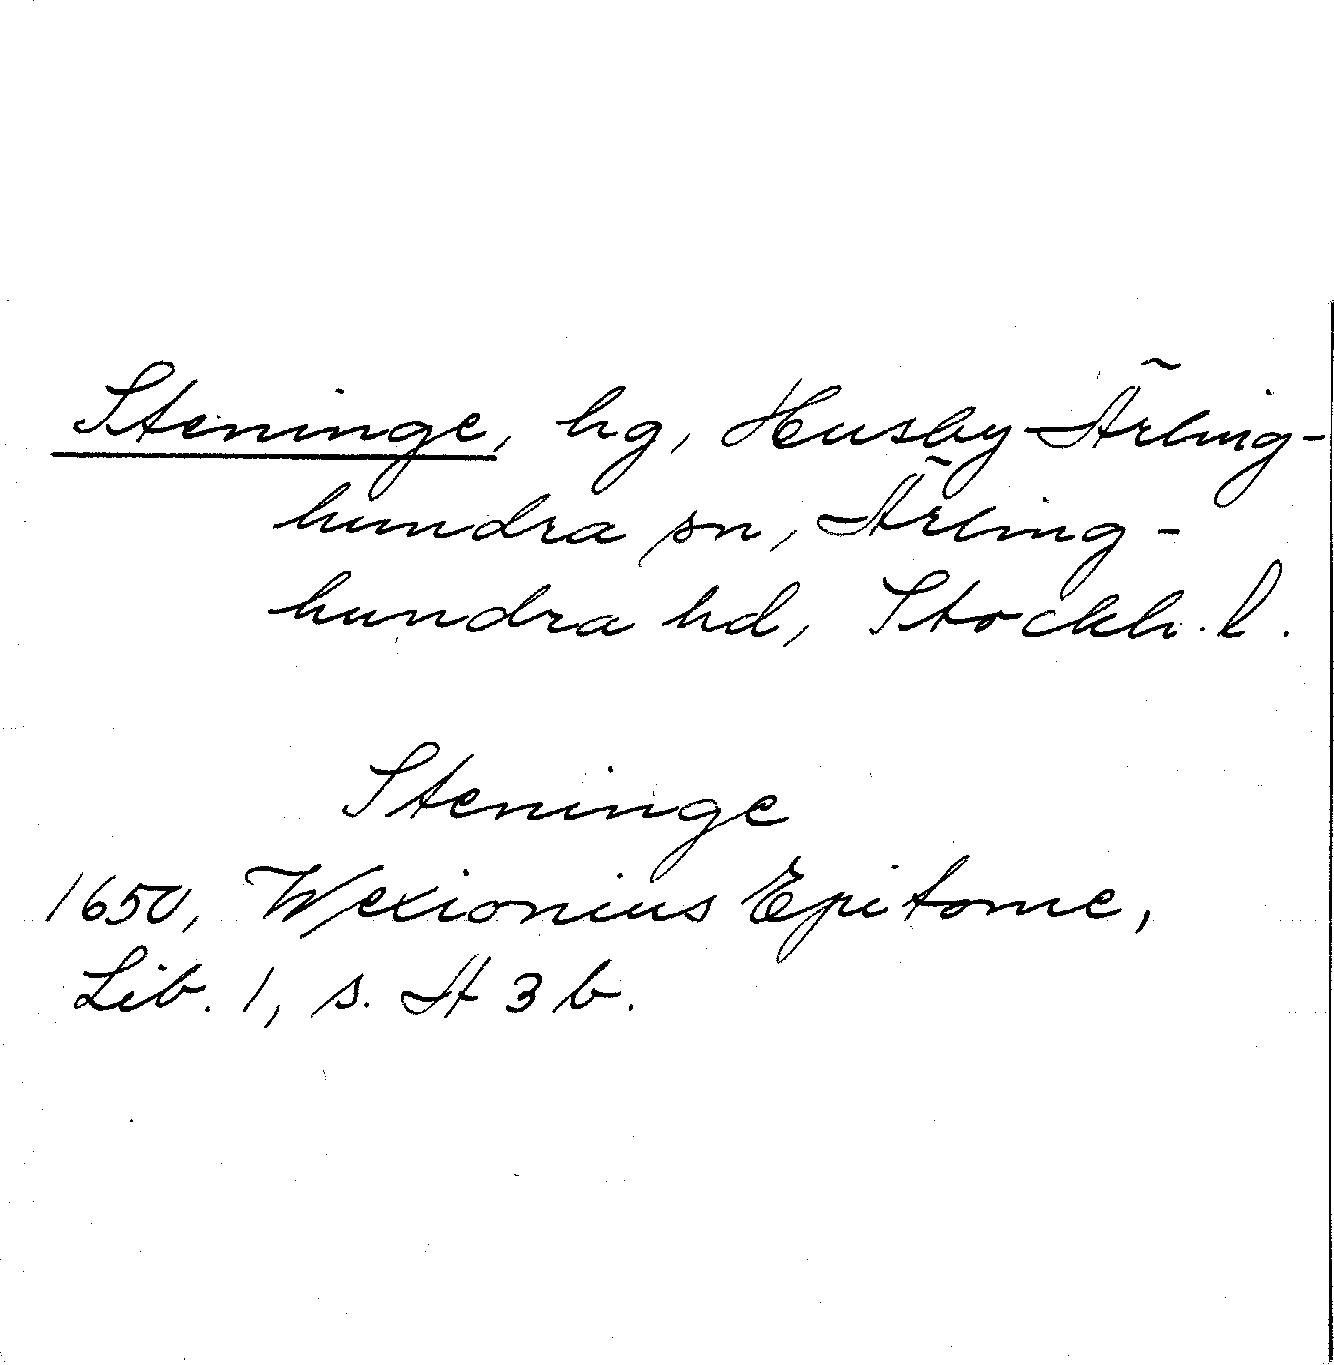 Steninge, hg, Husby-Ärling-
hundra sn, Ärling-
hundra hd, Stockh. l.
Steninge
1650, Wexionius Epitome,
Lib. 1, s. A 3 b.